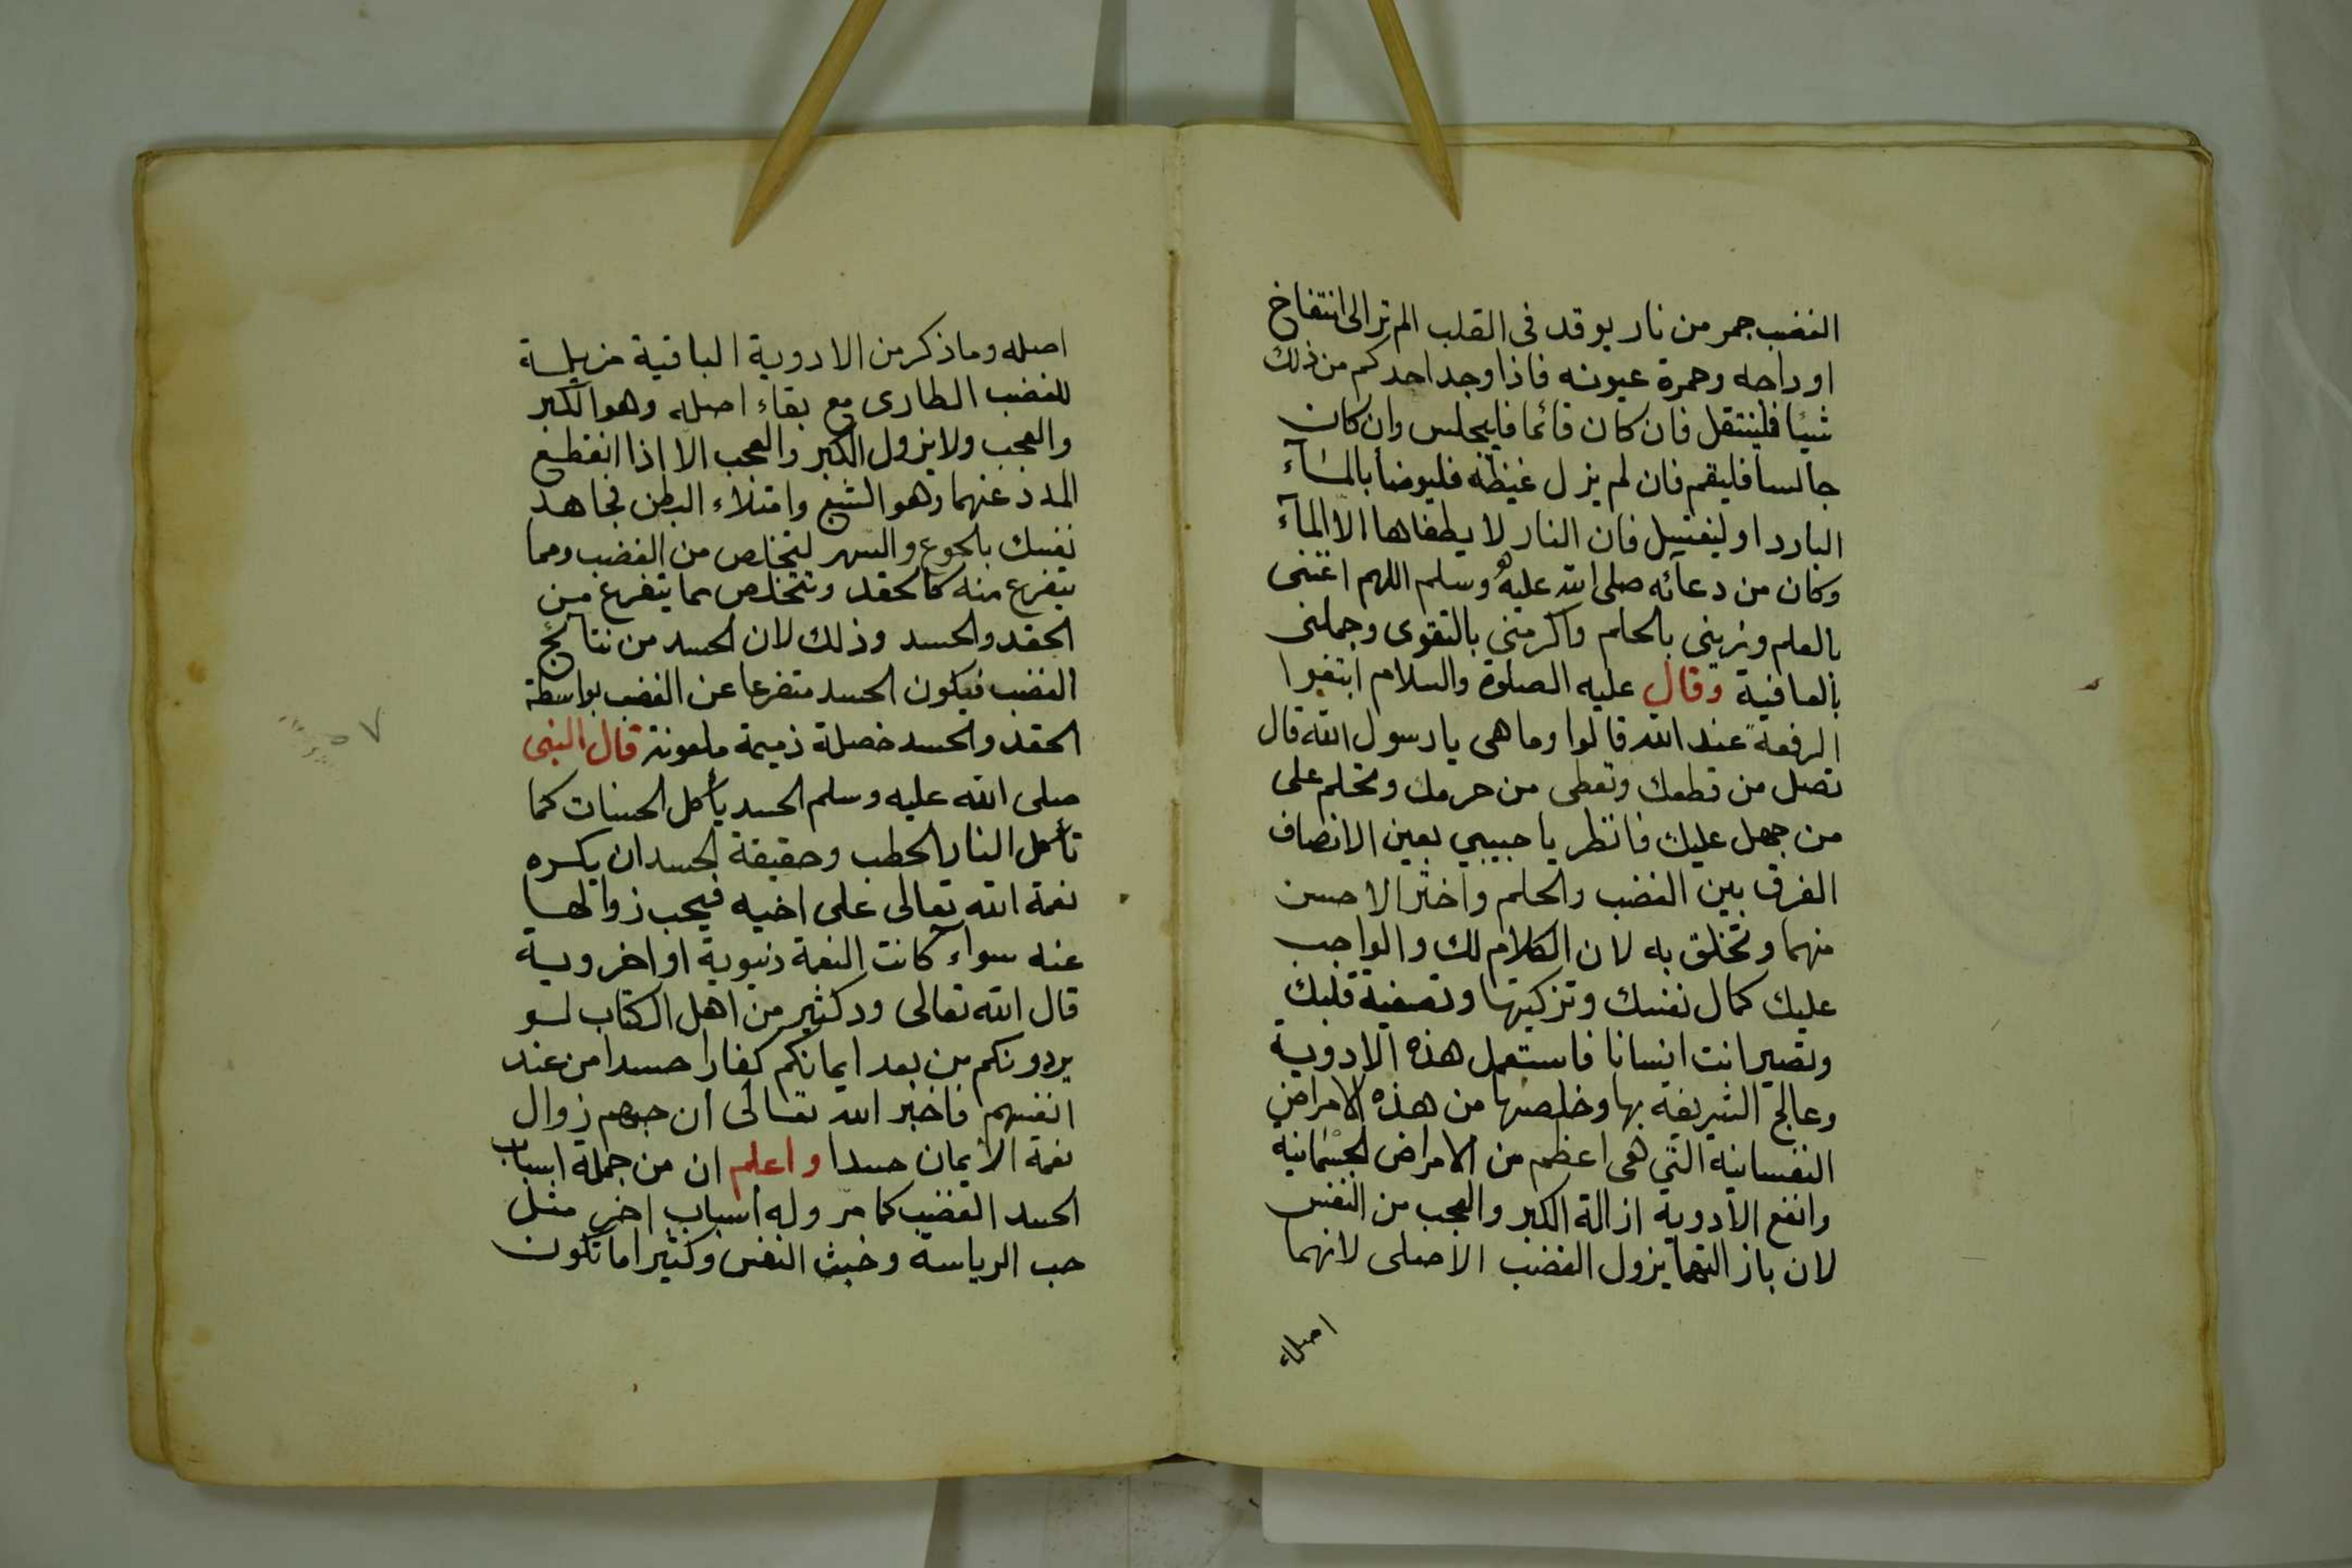 الغضب جمر من نار يوقد فى القلب الم تر الى انتفاخ
اوداجه وحمرة عيونه فاذا وجد احدكم من ذلك
شيئا فلينتقل فان كان قائما فليجلس وان كان
جالسا فليقم فان لم يزل غيظه فليوضأ بالمآء
البارد او ليغتسل فان النار لا يطفاها الا المآء
وكان من دعائه صلى الله عليه وسلم اللهم اغننى
بالعلم وزينى بالحلم واكرمنى بالتقوى وجملنى
بالعافية وقال عليه الصلوة والسلام ابتغوا
الرفعة عند الله قالوا وما هى يا رسول الله قال
تصل من قطعك وتعطى من حرمك وتحلم على
من جهل عليك فانظر يا حبيبي بعين الانصاف
الفرق بين الغضب والحلم واختر الاحسن
منهما وتخلق به لان الكلام لك والواجب
عليك كمال نفسك وتزكيتها وتصفية قلبك
وتصير انت انسانا فاستعمل هذه الادوية
وعالج الشريفة بها وخلصها من هذه الامراض
النفسانية التي هى اعظم من الامراض الجسمانية
وانفع الادوية ازالة الكبر والعجب من النفس
لان بازالتهما يزول الغضب الاصلى لانهما
اصله
اصله وما ذكر من الادوية الباقية مزيلة
للغضب الطارى مع بقاء اصله وهو الكبر
والعجب ولا يزول الكبر والعجب الا اذا انقطع
المدد عنهما وهو الشبع وامتلاء البطن فجاهد
نفسك بالجوع والسهر لتخلص من الغضب ومما
يتفرع منه كالحقد وتتخلص مما يتفرع من
الحقد والحسد وذلك لان الحسد من نتائج
الغضب فيكون الحسد متفرعا عن الغضب بواسطة
الحقد والحسد خصلة ذميمة ملعونة قال النبى
صلى الله عليه وسلم الحسد يأكل الحسنات كما
تأكل النار الحطب وحقيقة الحسد ان يكره
نعمة الله تعالى على اخيه فيحب زوالها
عنه سواء كانت النعمة دنيوية او اخروية
قال الله تعالى ود كثير من اهل الكتاب لو
يردونكم من بعد ايمانكم كفارا حسدا من عند
انفسهم فاخبر الله تعالى ان حبهم زوال
نعمة الايمان حسدا واعلم ان من جملة اسباب
الحسد الغضب كما مر وله اسباب اخر مثل
حب الرياسة وخبث النفس وكثيرا ما تكون